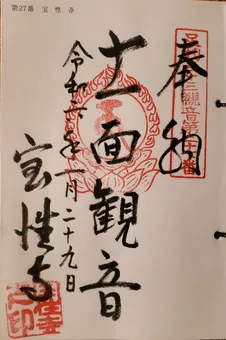 第27番 宝性寺
奉拝
十一面観音
令和六年一月二十九日
宝性寺